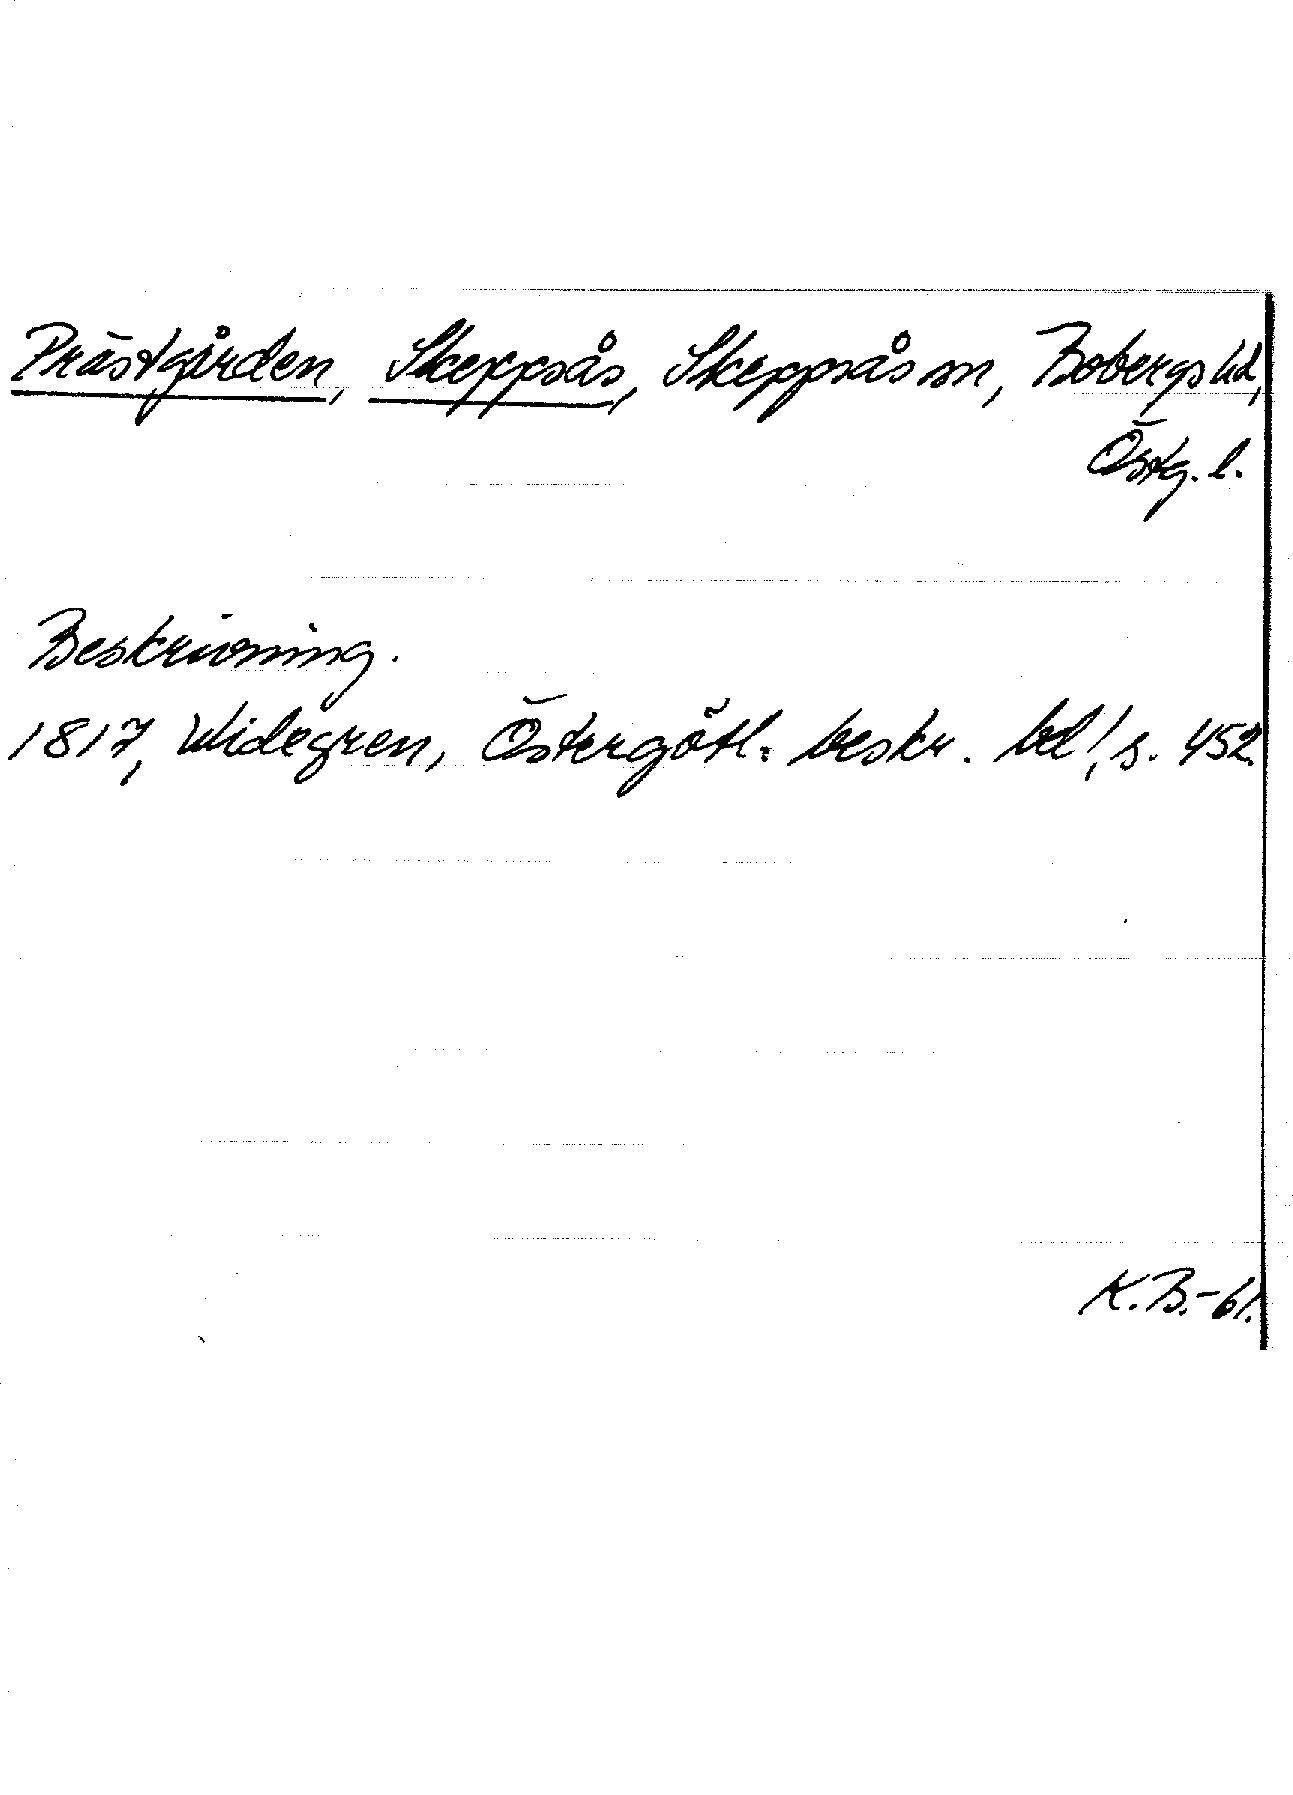 Prästgården, Skeppsås, Skeppsås sn, Bobergs hd,
Östg. l.
Beskrivning.
1817, Widegren, Östergötl:s beskr. bd 1, s. 452
K.B.-61.